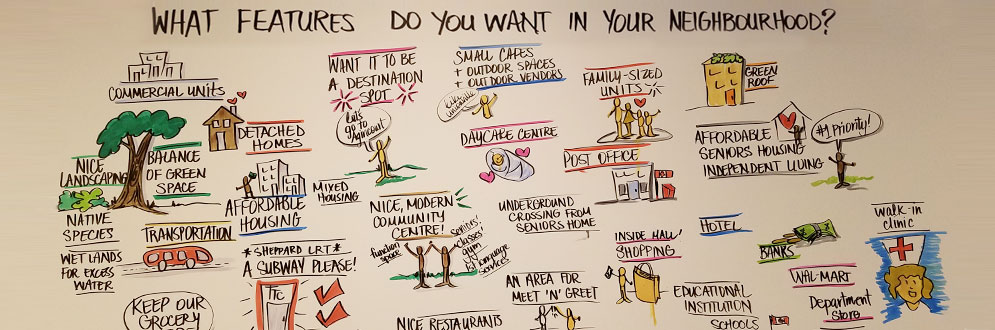 WHAT FEATURES DO YOU WANT IN YOUR NEIGHBOURHOOD?
COMMERCIAL UNITS
WANT IT TO BE
A DESTINATION
SPOT
Let's
go to
Agincourt
SMALL CAFES
+ OUTDOOR SPACES
+ OUTDOOR VENDORS
FAMILY-SIZED
UNITS
GREEN
ROOF
DETACHED
HOMES
NICE
LANDSCAPING
BALANCE
OF GREEN
SPACE
DAYCARE CENTRE
POST OFFICE
AFFORDABLE
SENIORS HOUSING
INDEPENDENT LIVING
#1 PRIORITY!
AFFORDABLE
HOUSING
MIXED
HOUSING
NATIVE
SPECIES
WETLANDS
FOR EXCESS
WATER
TRANSPORTATION
NICE, MODERN
COMMUNITY
CENTRE!
function
space
Seniors'
classes
gym
language
services
UNDERGROUND
CROSSING FROM
SENIORS HOME
INSIDE MALL/
SHOPPING
HOTEL
BANKS
WALK-IN
clinic
*SHEPPARD LRT*
A SUBWAY PLEASE!
TTC
KEEP OUR
GROCERY
AN AREA FOR
MEET 'N' GREET
NICE RESTAURANTS
EDUCATIONAL
INSTITUTION
SCHOOLS
WAL-MART
Department
Store